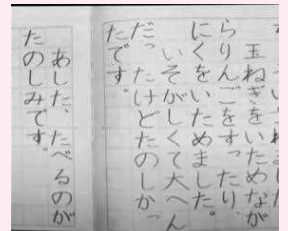 玉ねぎをいためなが
らりんごをすったり、
にくをいためました。
いそがしくて大へん
だったけどたのしかっ
たです。
あした、たべるのが
たのしみです。